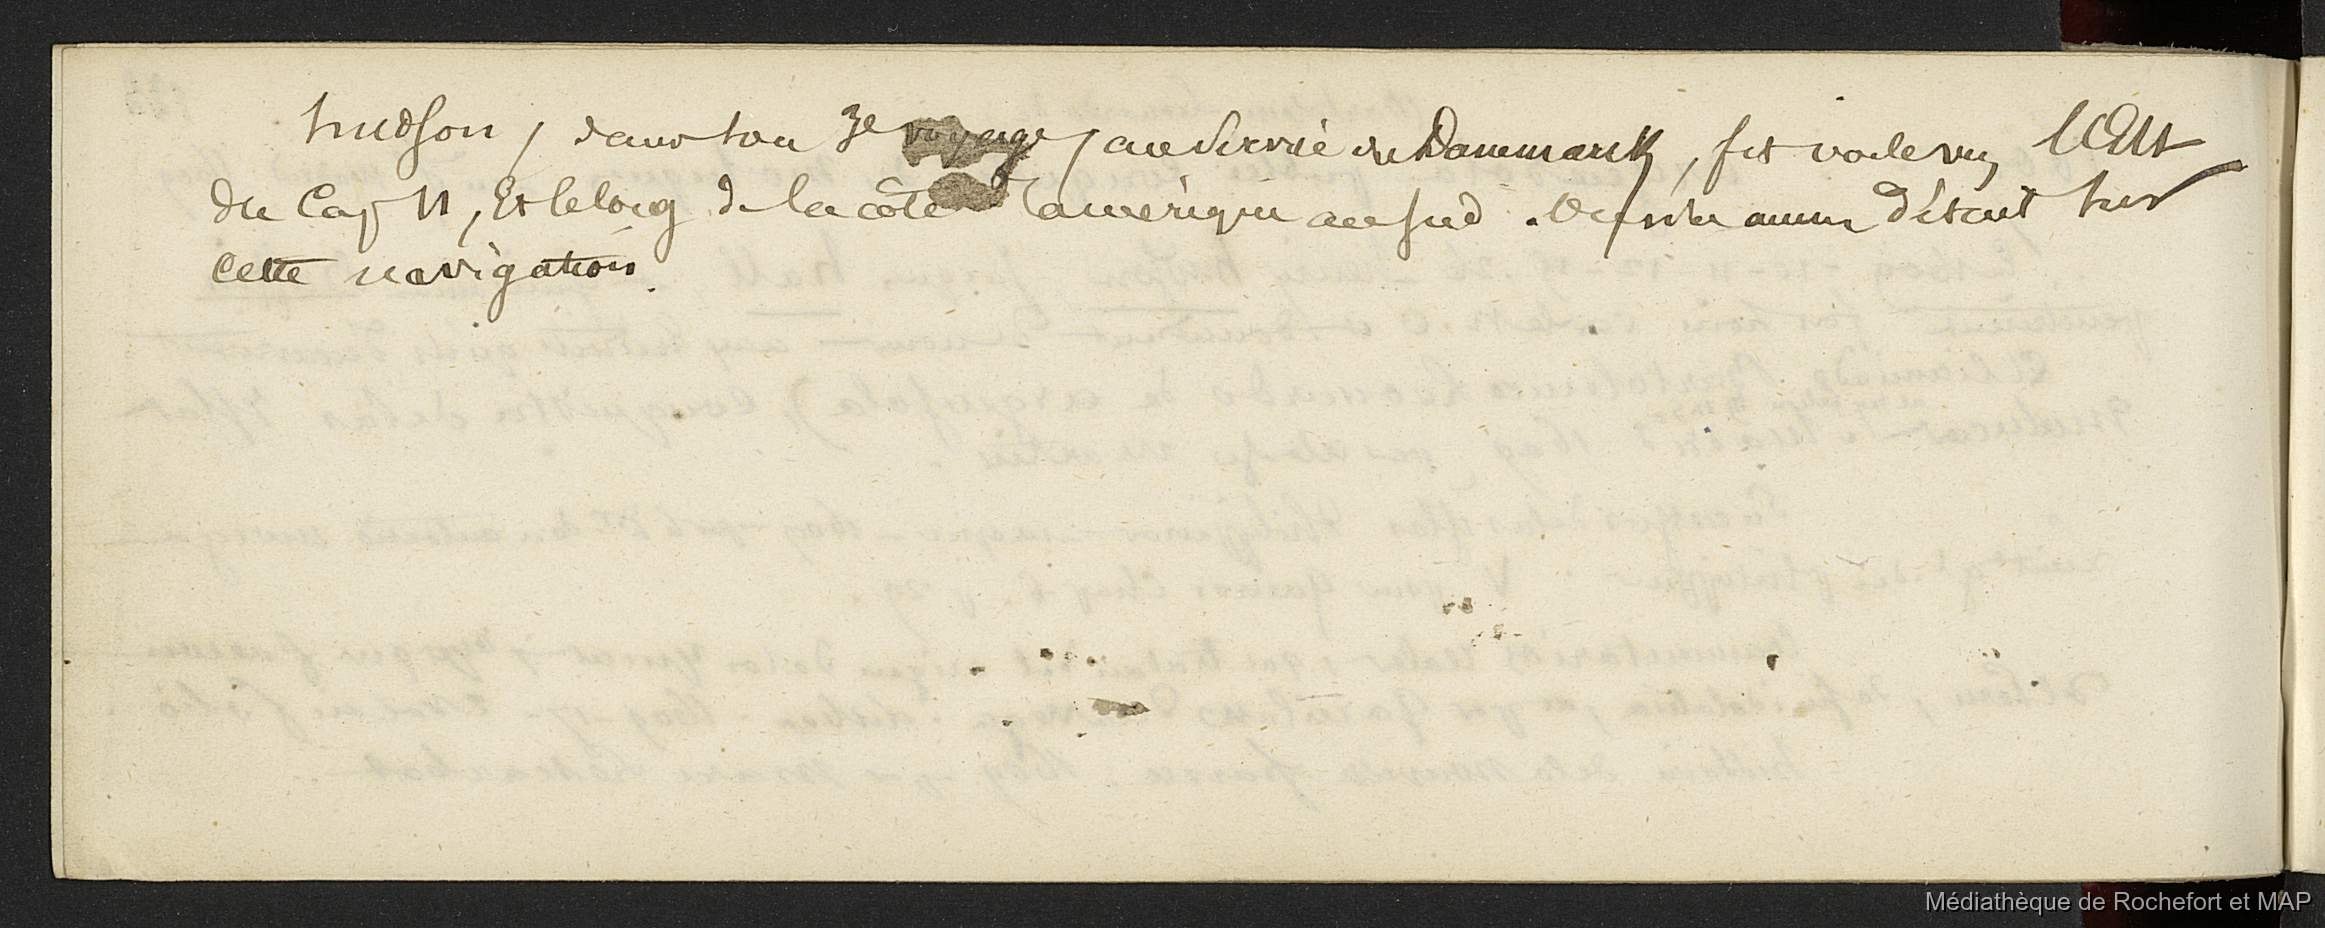 hudson, dans son 3e voyage, au service du Dannemark, fit voile vers l'Est
du Cap N, et le long de la côte d'amérique au sud. aucun détail sur
cette navigation.
Médiathèque de Rochefort et MAP